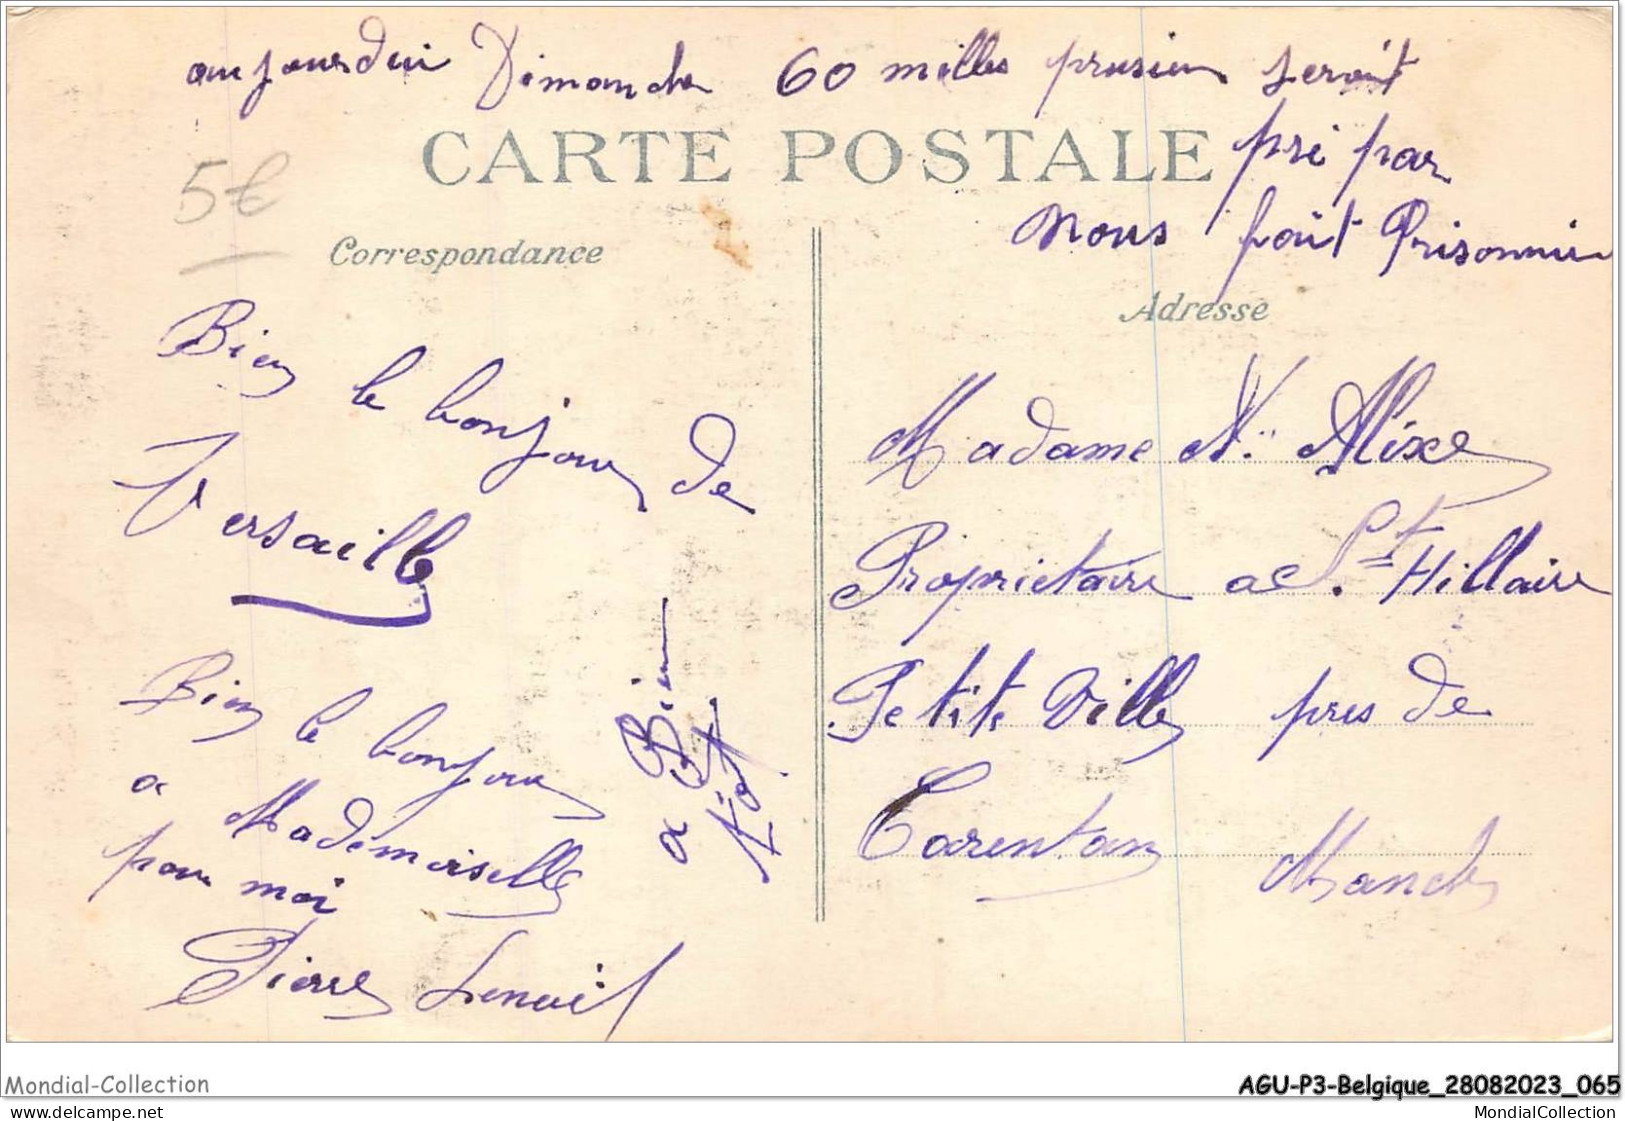 aujourdui Dimanche 60 milles prusien serait
pri par
nous fait Prisonnier
CARTE POSTALE
5€
Correspondance
Bien
le bonjour de
Versaille
Bien le bonjour
a Mademoiselle
pour moi
Pierre
a Bien
Adresse
Madame Ve Alixe
Propriétaire a St Hillaire
Petite Ville pres de
Carentan Manche
Mondial-Collection
www.delcampe.net
AGU-P3-Belgique_28082023_065
MondialCollection